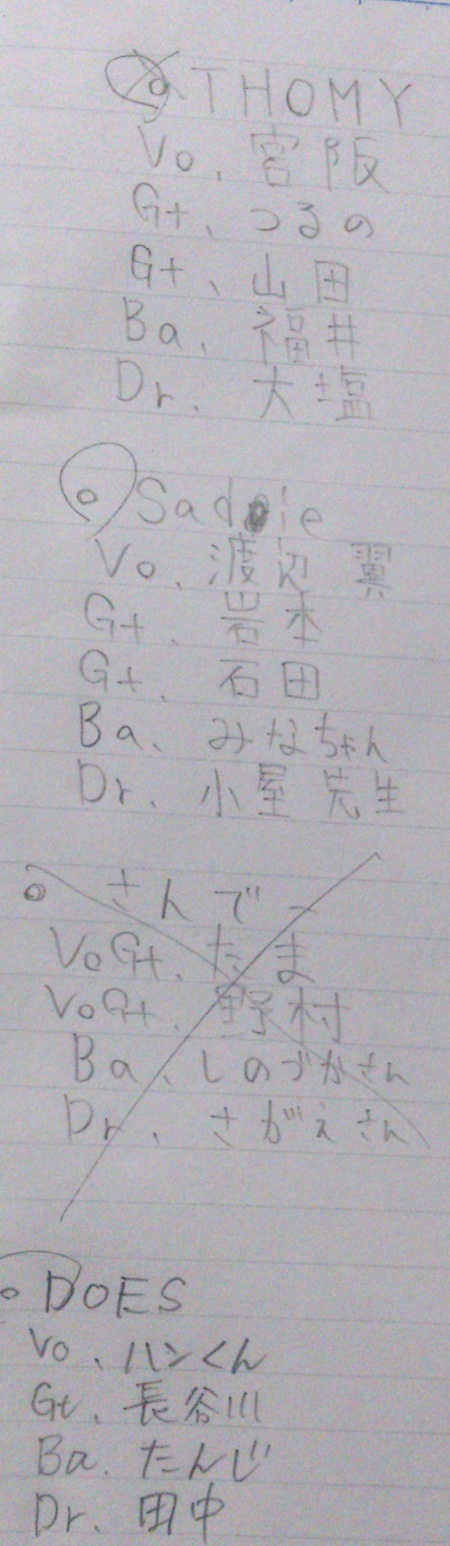 THOMY
Vo. 宮阪
Gt. つるの
Gt. 山田
Ba. 福井
Dr. 大塩
Sadie
Vo. 渡辺 翼
Gt. 岩本
Gt. 石田
Ba. みなちゃん
Dr. 小屋 先生
さんでー
VoGt. たま
VoGt. 野村
Ba. しのづかさん
Dr. さがえさん
DOES
Vo. ハンくん
Gt. 長谷川
Ba. たんじ
Dr. 田中